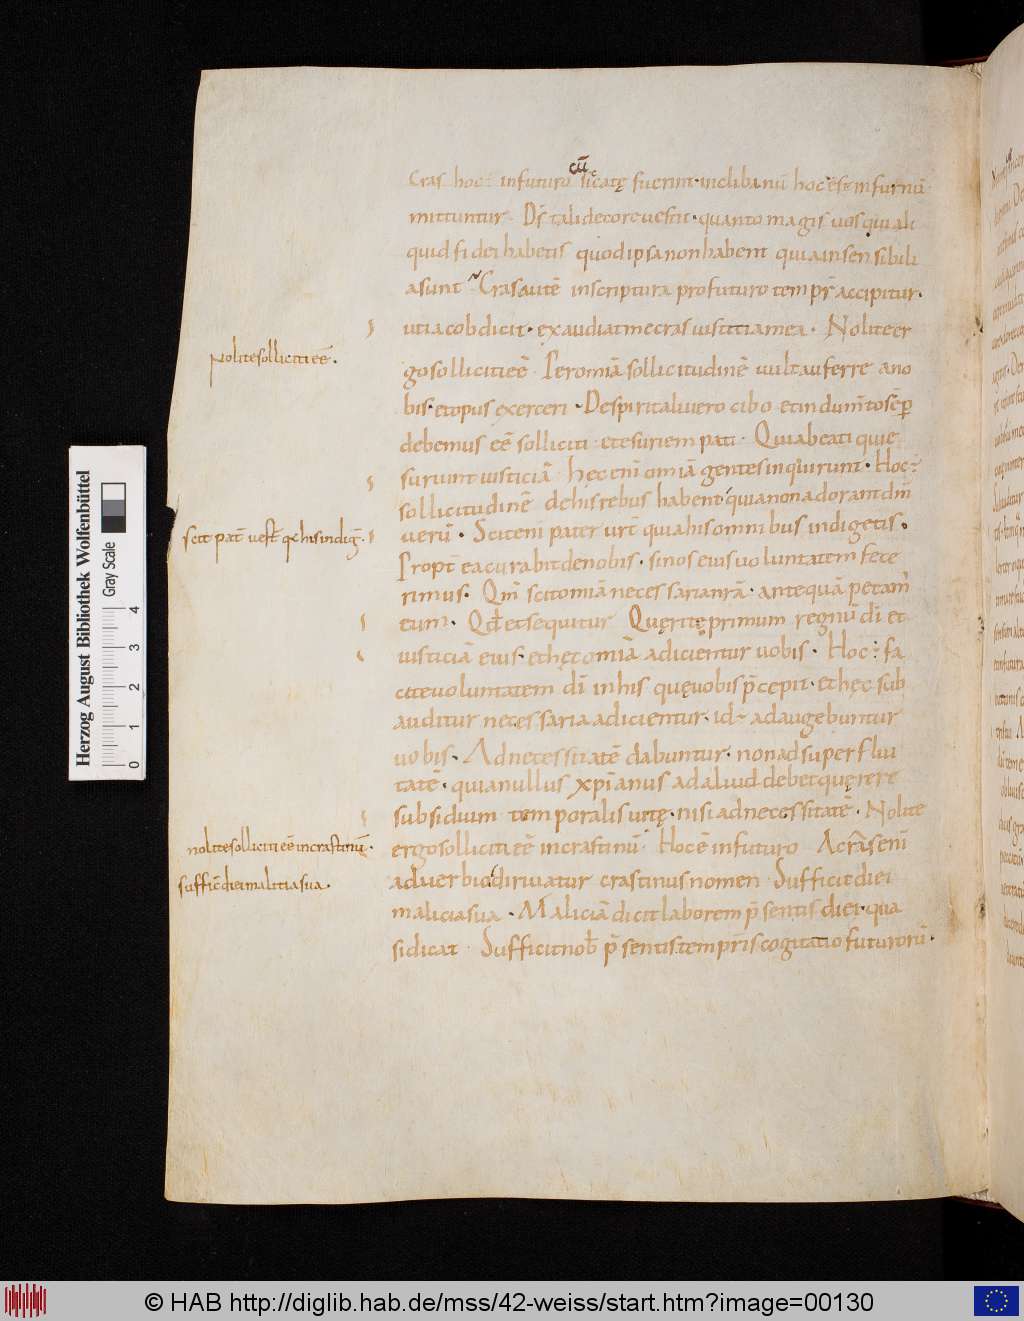 cū
Cras hoc ÷ infuturo siccatę fuerint · inclibanū hoc est infurnū
mittuntur · Ds̄ talidecorevestit · quanto magis vos qui ali
quid fidei habetis quod ipsa non habent quia insensibili
a sunt Cras autē inscriptura profuturo tempr̄ accipitur ·
utiacob dicit · exaudiat me cras iustitia mea · Nolite er
nolite solliciti eē ·
go solliciti eē · Per omīa sollicitudinē vult auferre a no
bis · et opus exerceri · De spiritali vero cibo et indumt̄o sēp
debemus eē solliciti et esuriem pati · Quia beati qui e
suriunt iusticiā · hęc enī omīa gentes inquirunt · Hoc ÷
sollicitudinē de his rebus habent quia non adorant dn̄m
scit pat̄ vest̄ q̄ his indiḡ ·
verū · Scit enī pater vr̄t quia his omnibus indigetis ·
Propt̄ ea curabit de nobis · si nos eius voluntatem fece
rimus · Qm̄ scit omīa necessaria nr̄a · antequā petam̄
eum · Qd̄ et sequitur Quęrite primum regnū dī et
iusticiā eius · et hęc omīa adicientur vobis · Hoc ÷ fa
cite voluntatem dī in his quę vobis p̄cepit · et hęc sub
auditur necessaria adicientur · id ÷ adaugebuntur
vobis · Ad necessitatē dabuntur · non ad superflui
tatē · quia nullus xp̄ianus ad aliud debet quęrere
subsidium temporalis vitę · nisi ad necessitatē · Nolite
nolite solliciti eē in crastinū ·
ergo solliciti eē in crastinū · Hoc ē in futuro A cras enī
sufficit diei malitia sua ·
adverbio dirivatur crastinus nomen · Sufficit diei
malicia sua · Maliciā dicit laborem p̄sentis diei · qua
si dicat · Sufficit nob̄ p̄sentis tempris̄ cogitatio futurorū ·
Herzog August Bibliothek Wolfenbüttel
Gray Scale
0 1 2 3 4
© HAB http://diglib.hab.de/mss/42-weiss/start.htm?image=00130